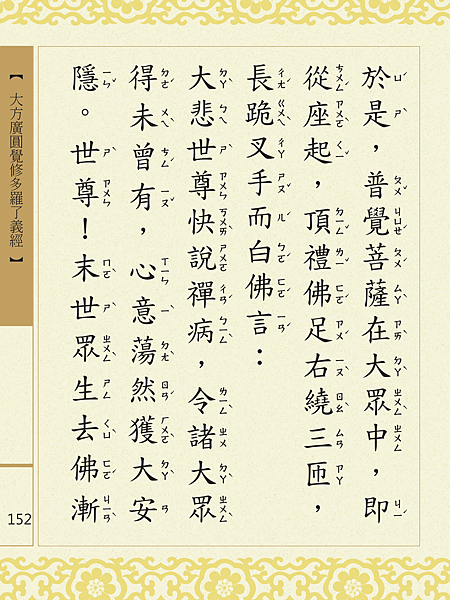 於是，普覺菩薩在大眾中，即
從座起，頂禮佛足右繞三匝，
長跪叉手而白佛言：
大悲世尊快說禪病，令諸大眾
得未曾有，心意蕩然獲大安
隱。世尊！末世眾生去佛漸
【大方廣圓覺修多羅了義經】
152